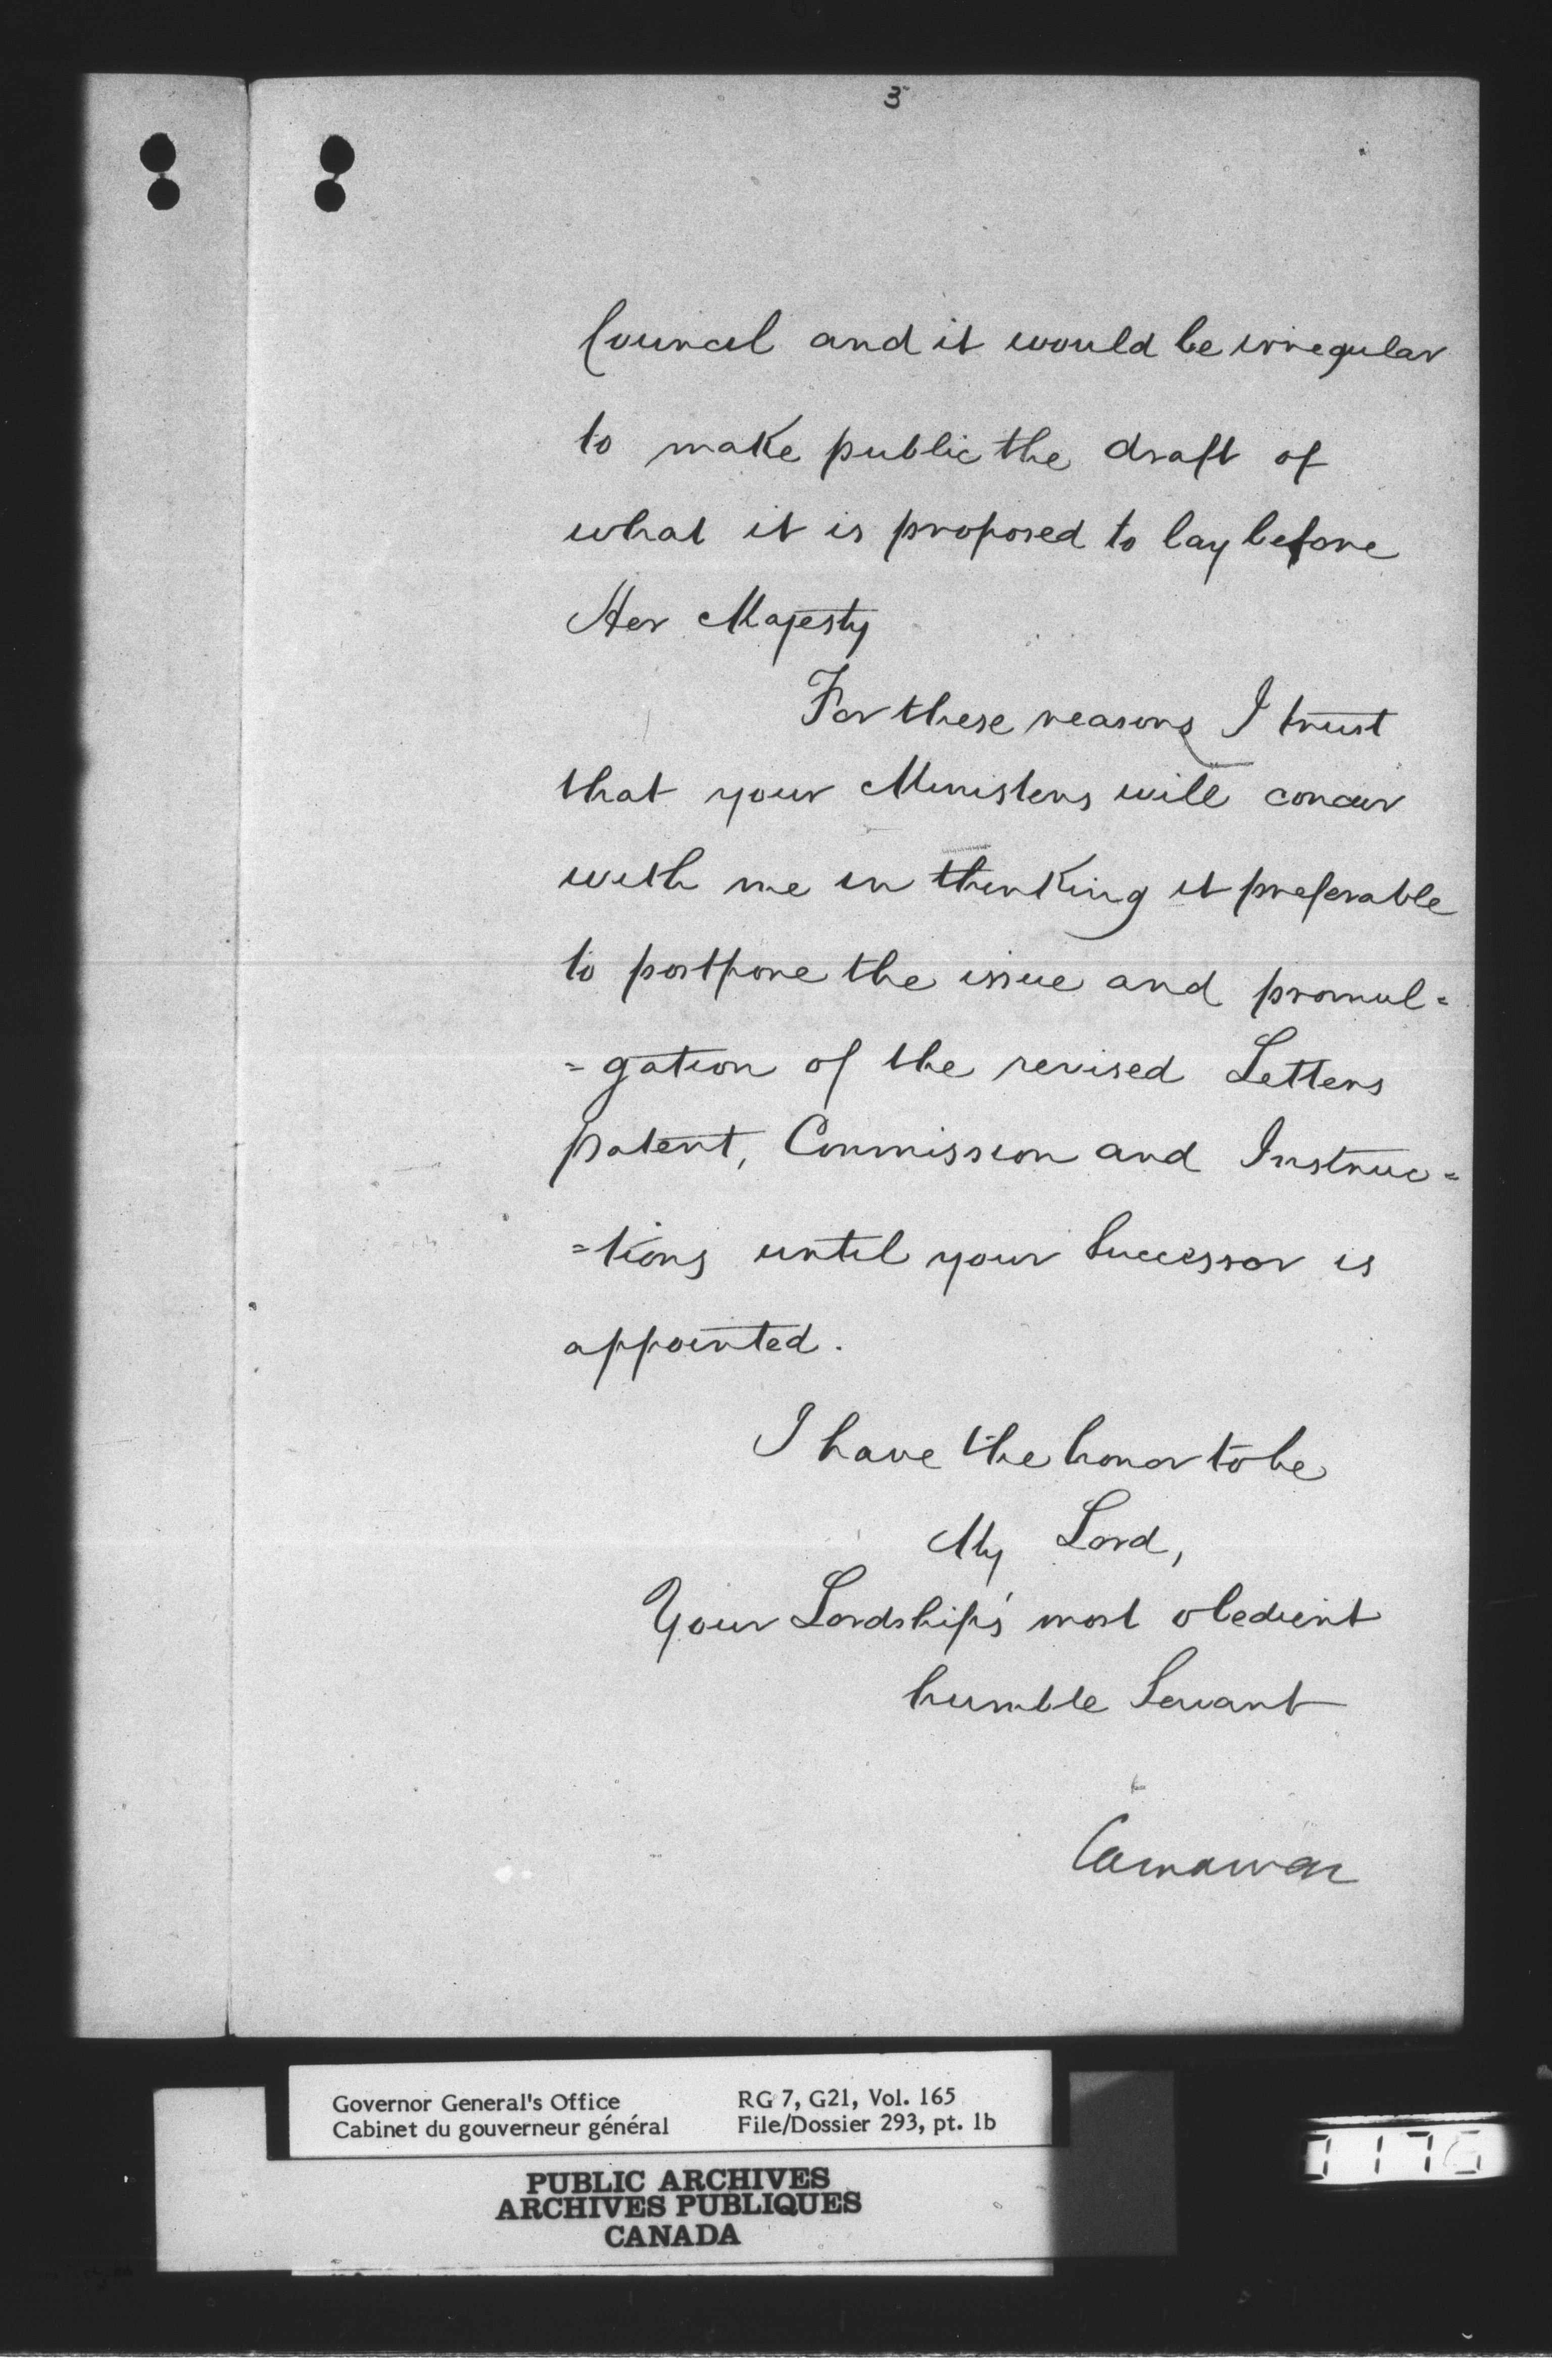 3
Council and it would be irregular
to make public the draft of
what it is proposed to lay before
Her Majesty
For these reasons I trust
that your Ministers will concur
with me in thinking it preferable
to postpone the issue and promul=
=gation of the revised Letters
patent, Commission and Instruc=
=tions until your Successor is
appointed.
I have the honor to be
My Lord,
Your Lordship's most obedient
humble Servant
Carnarvon
Governor General's Office
Cabinet du gouverneur général
RG 7, G21, Vol. 165
File/Dossier 293, pt. 1b
PUBLIC ARCHIVES
ARCHIVES PUBLIQUES
CANADA